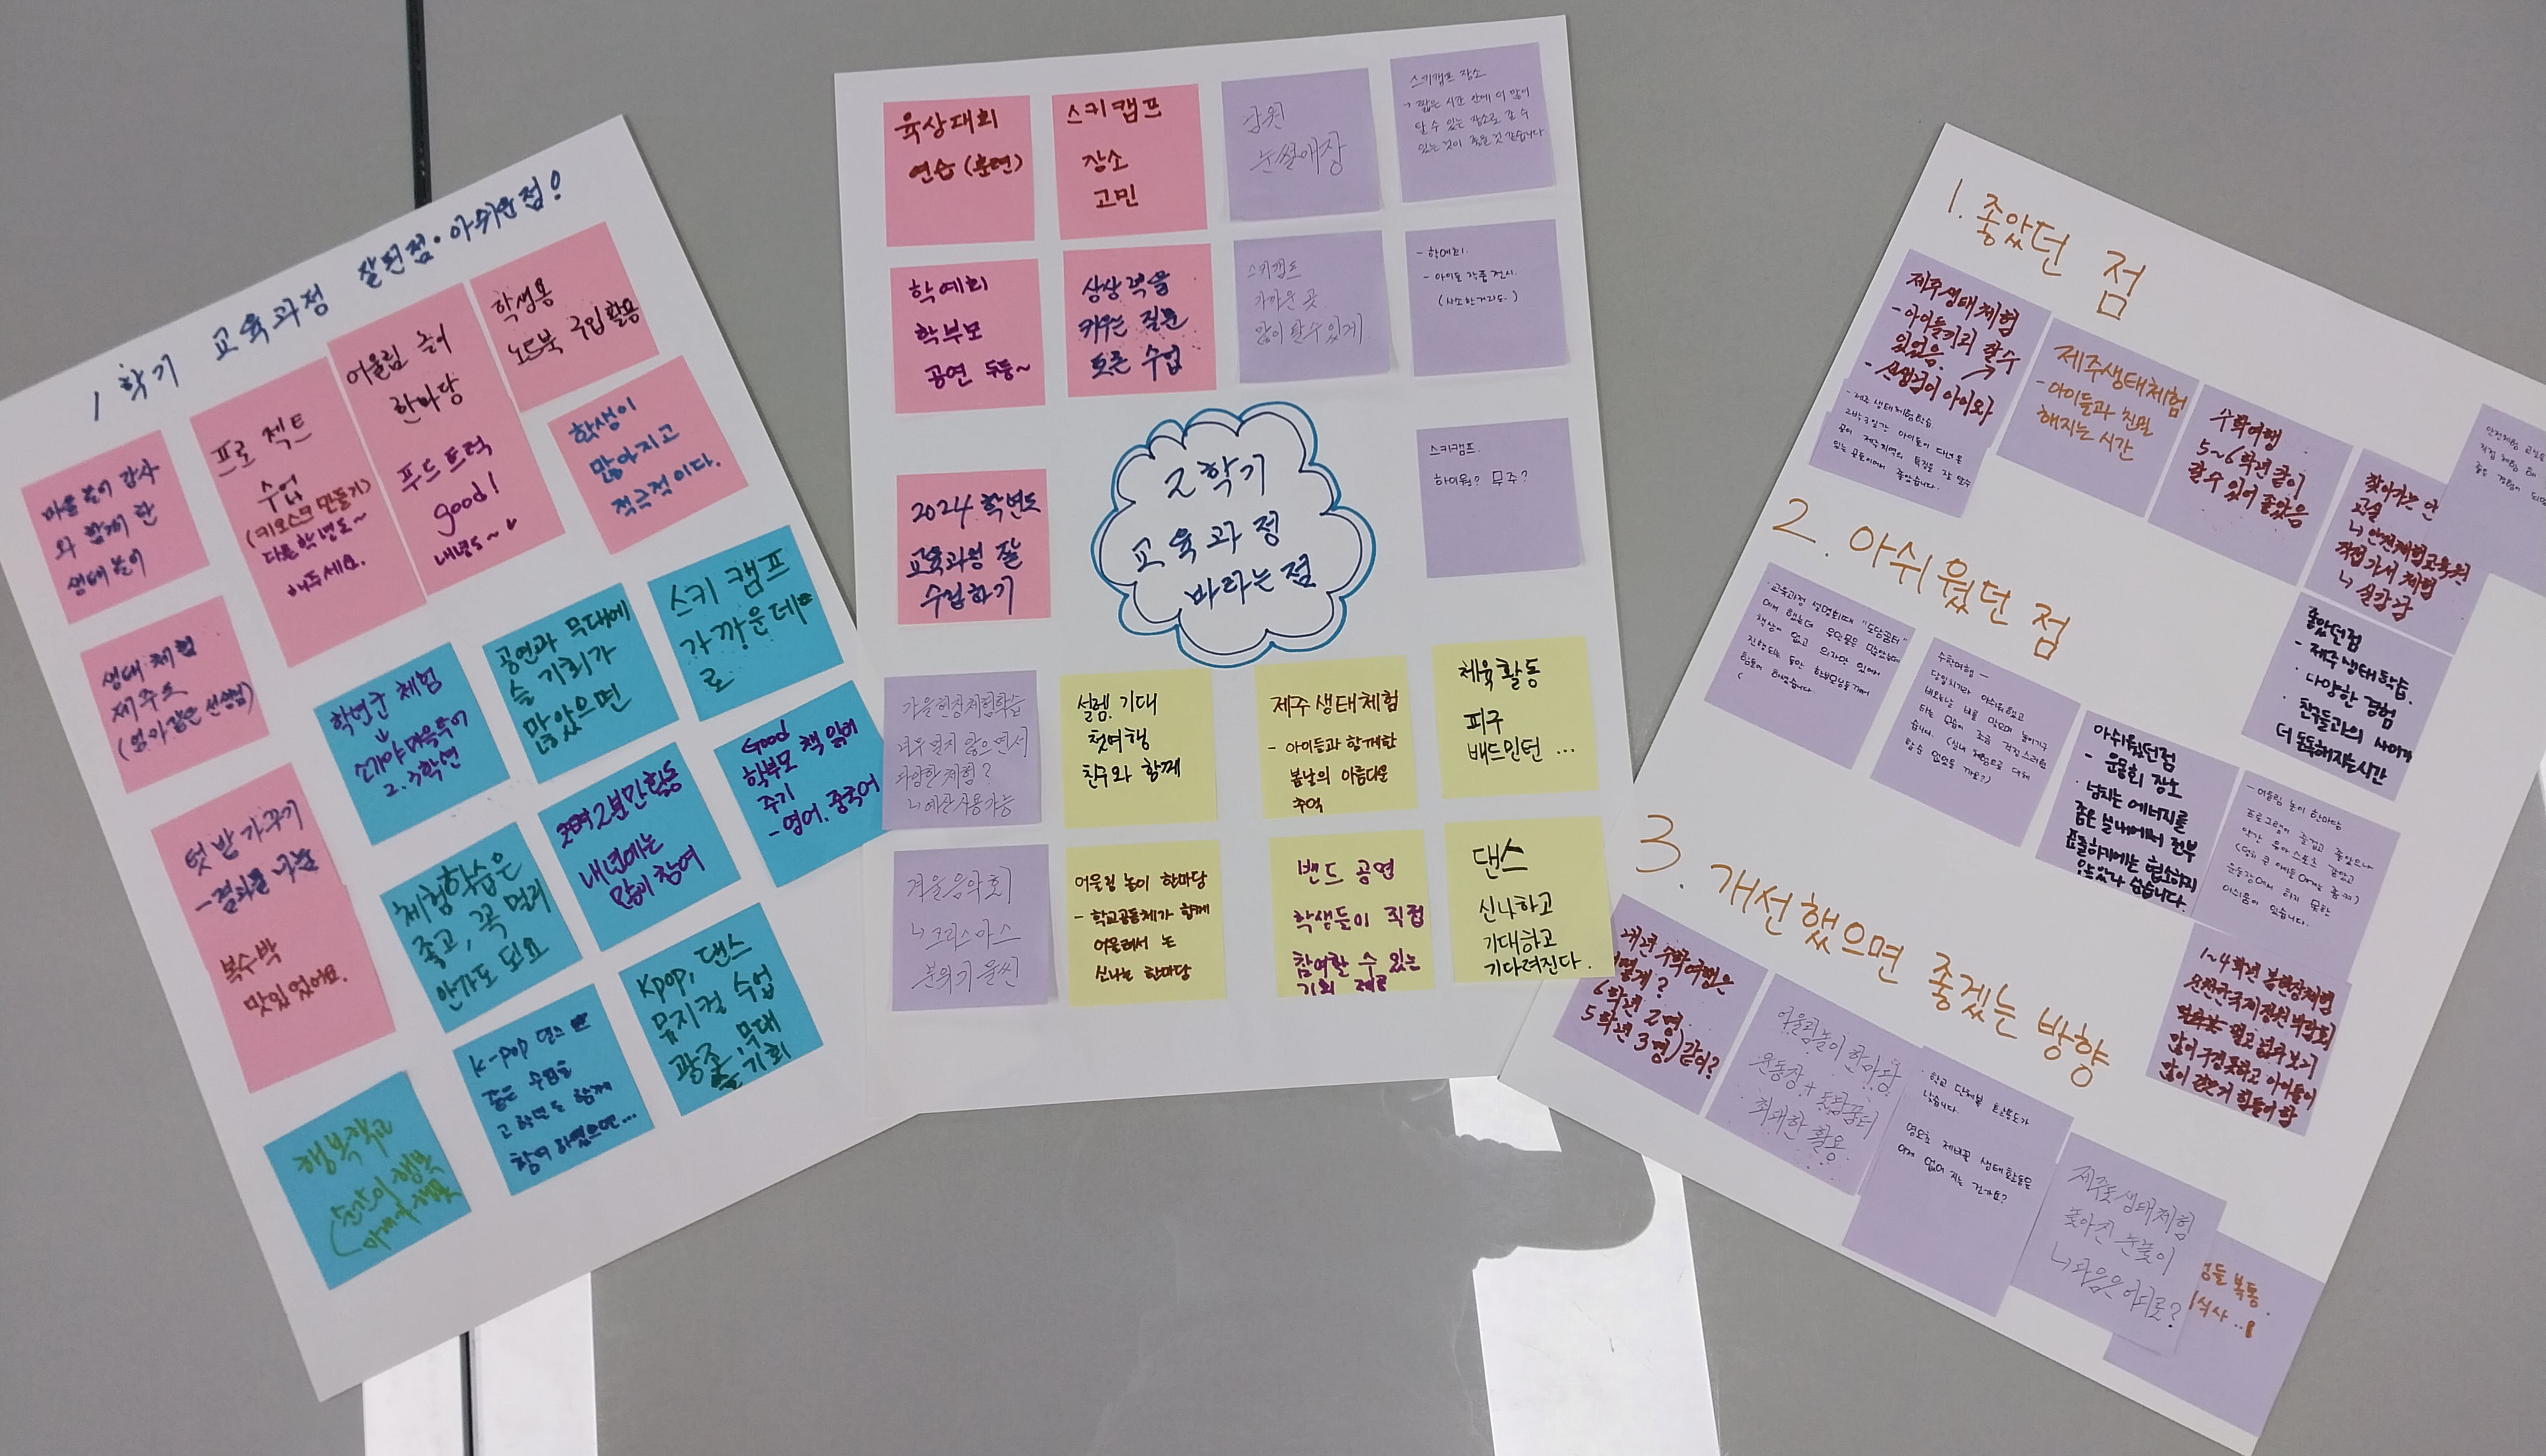 1학기 교육과정 잘된점·아쉬운점!
마을 놀이 강사
와 함께 한
생태 놀이
프로젝트
수업
(키오스크 만들기)
다른학년도~
해주세요.
어울림 놀이
한마당
푸드트럭
good!
내년도~
학생용
노트북 구입 활용
학생이
많아지고
적극적이다.
생태 체험
제주도
(엄마같은 선생님)
텃밭 가꾸기
-결과물 나눔
복수박
맛있었어요.
학년군 체험
소가야
2. 3학년
공연과 무대에
슬 기회가
많았으면
스키 캠프
가까운데
로
체험학습은
좋고, 꼭 멀리
안가도 되요
2분만 활동
내년에는
많이 참여
Good
학부모 책 읽어
주기
-영어. 중국어
행복학교
K-pop 댄스
좋은 수업을
고학년도 함께
참여 하였으면...
Kpop, 댄스
뮤지컬 수업
굳굳. 무대
슬 기회
육상대회
연습(훈련)
스키캠프
장소
고민
강원
눈썰매장
스키캠프 장소
→ 짧은 시간 안에 더 많이
탈 수 있는 장소로 갈 수
있는 것이 좋을 것 같습니다
학예회
학부모
공연 두둥~
상상력을
키우는 질문
토론 수업
스키캠프
가까운 곳
많이 탈 수 있게
- 학예회.
- 아이들 작품 전시.
(사소한거라도.)
2024 학년도
교육과정 잘
수립하기
2학기
교육과정
바라는 점
스키캠프.
하이원? 무주?
가을현장체험학습
너무 멀지 않으면서
다양한 체험?
ㄴ예산사용가능
설렘. 기대
첫여행
친구와 함께
제주생태체험
- 아이들과 함께한
봄날의 아름다운
추억
체육활동
피구
배드민턴 ...
겨울음악회
ㄴ크리스마스
분위기 물씬
어울림 놀이 한마당
- 학교공동체가 함께
어울려서 논
신나는 한마당
밴드 공연
학생들이 직접
참여할 수 있는
기회 제공
댄스
신나하고
기대하고
기다려진다.
1. 좋았던 점
제주생태체험
- 아이들끼리 잘수
있었음.
- 선생님이 아이와
- 제주 생태체험학습.
2박 3일간 아이들이 다녀온
곳이 제주지역의 특징을 잘 알수
있는 곳들이여서 좋았습니다.
제주생태체험
- 아이들과 친밀
해지는 시간
수학여행
5~6학년같이
갈 수 있어 좋았음
찾아가는 안
교실
ㄴ 안전체험교육원
직접가서 체험
ㄴ 실감 급
좋았던점
- 제주생태학습.
· 다양한 경험
· 친구들과의 사이가
더 돈독해지는시간
2. 아쉬웠던 점
· 교육과정 설명회때 "도담꿈터"
에서 했는데 무인문은 많았는데
책상이 없고 의자만 있어서
진행되는 동안 학부모님들께서
힘들어 하셨습니다.
수학여행 -
당일치기라 아쉬워했고
비오는날 비를 맞으며 놀이기구
타는 모습이 조금 걱정스러웠
습니다. (실내 체험으로 대체
할순 없었을 까요?)
아쉬웠던점
- 운동회 장소
· 넘치는 에너지를
좁은 실내에서 전부
표출하기에는 협소하지
않았나 싶습니다.
- 어울림 놀이 한마당
프로그램이 즐겁고 좋았으나
약간 유아스포츠 같았고
운동장에서 하지 못한
아쉬움이 있습니다.
1~4학년 봄현장체험
순천만국제정원 박람회
많이 구경못하고 아이들이
많이 걷는거 힘들어 함
3. 개선했으면 좋겠는 방향
내년 수학여행은
어떻게?
6학년 2명
5학년 3명)같이?
어울림놀이 한마당
운동장 + 도담꿈터
최대한 활용
· 학교 단체복
낫습니다.
이제 없어 지는 건가요?
제주도 생태체험
높아진 눈높이
ㄴ다음은 어디로?